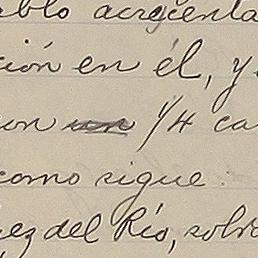 ablo acrecenta
ción en él, y
on un 1/4 ca
como sigue.
ez del Río, solv